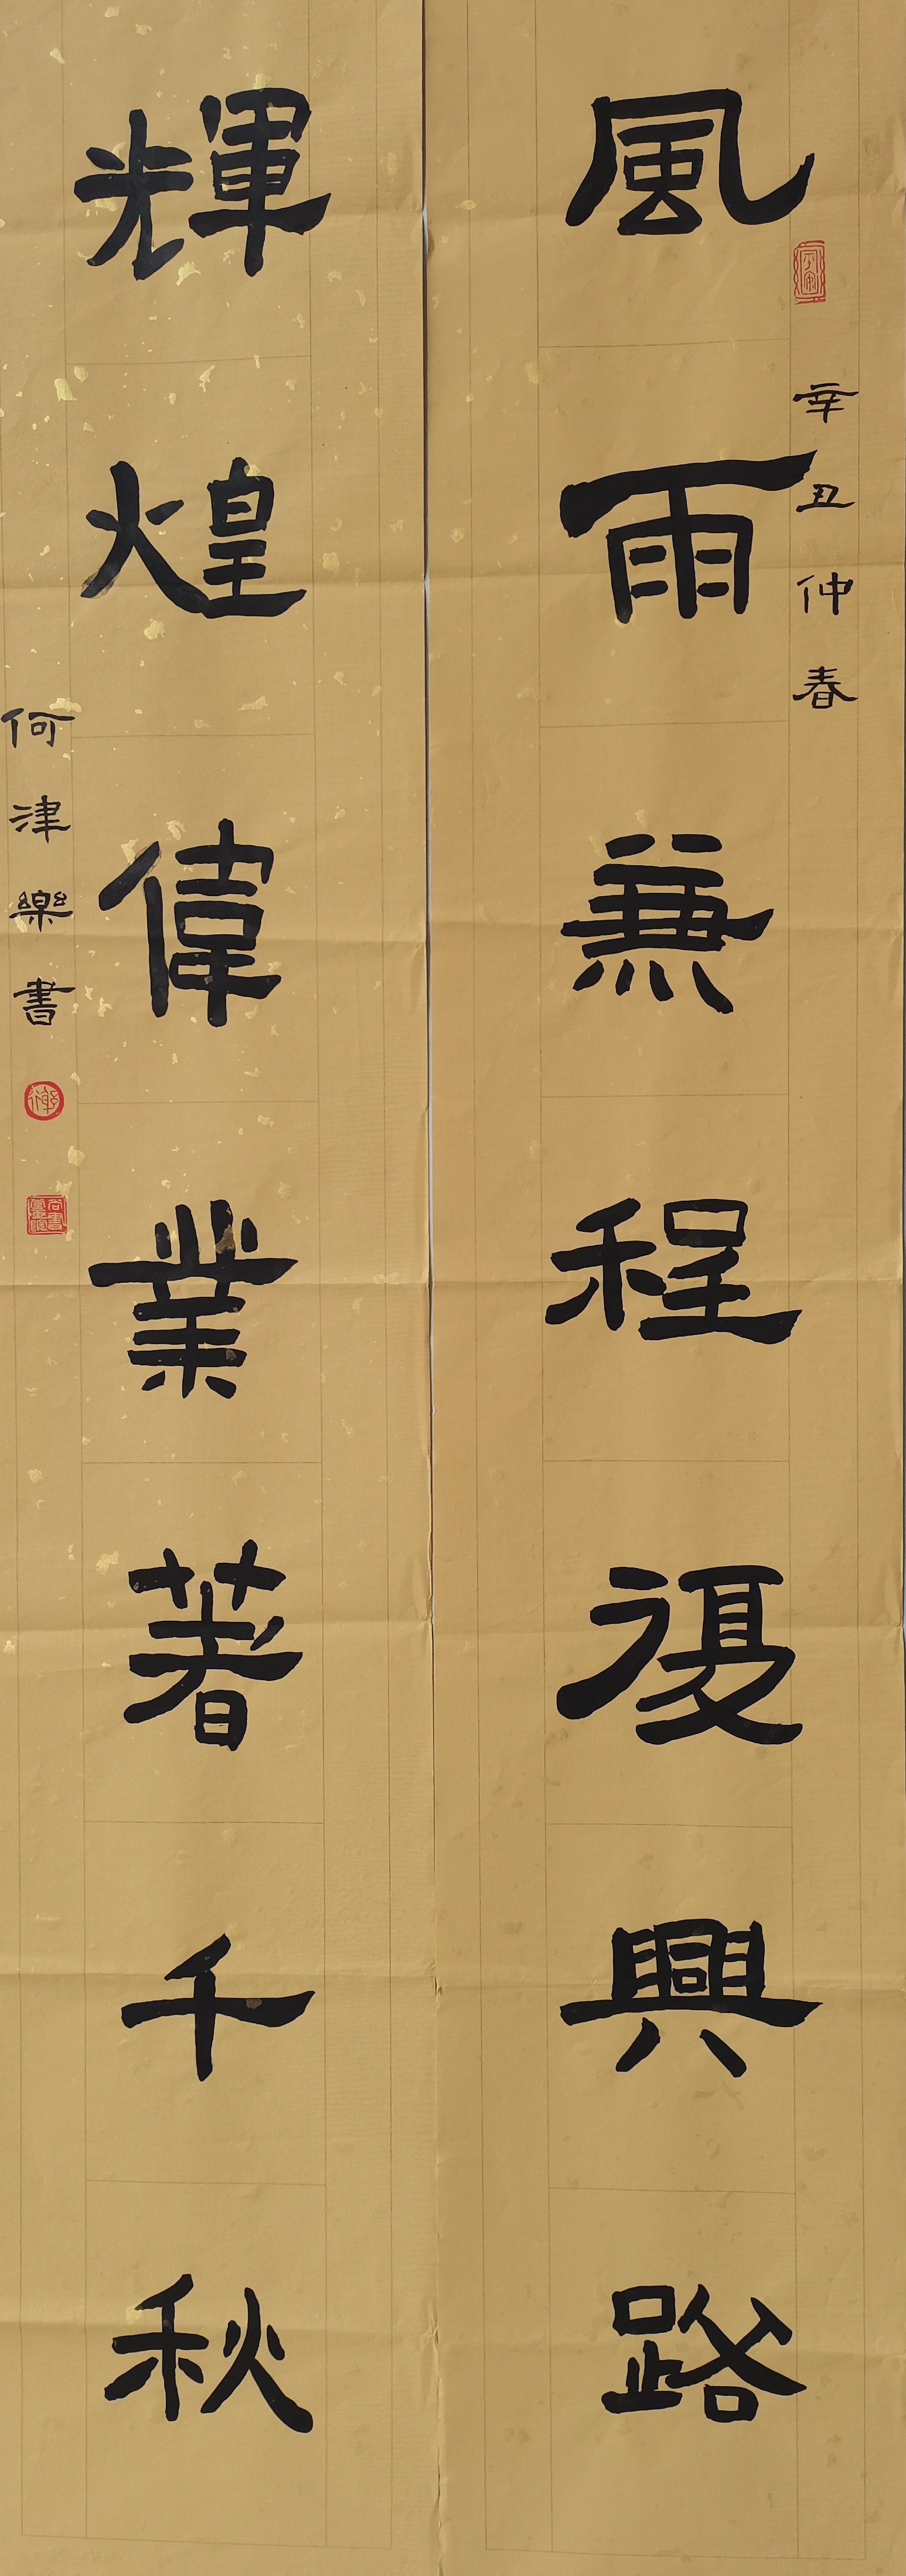 辛丑仲春
風雨兼程復興路
輝煌偉業著千秋
何津樂書